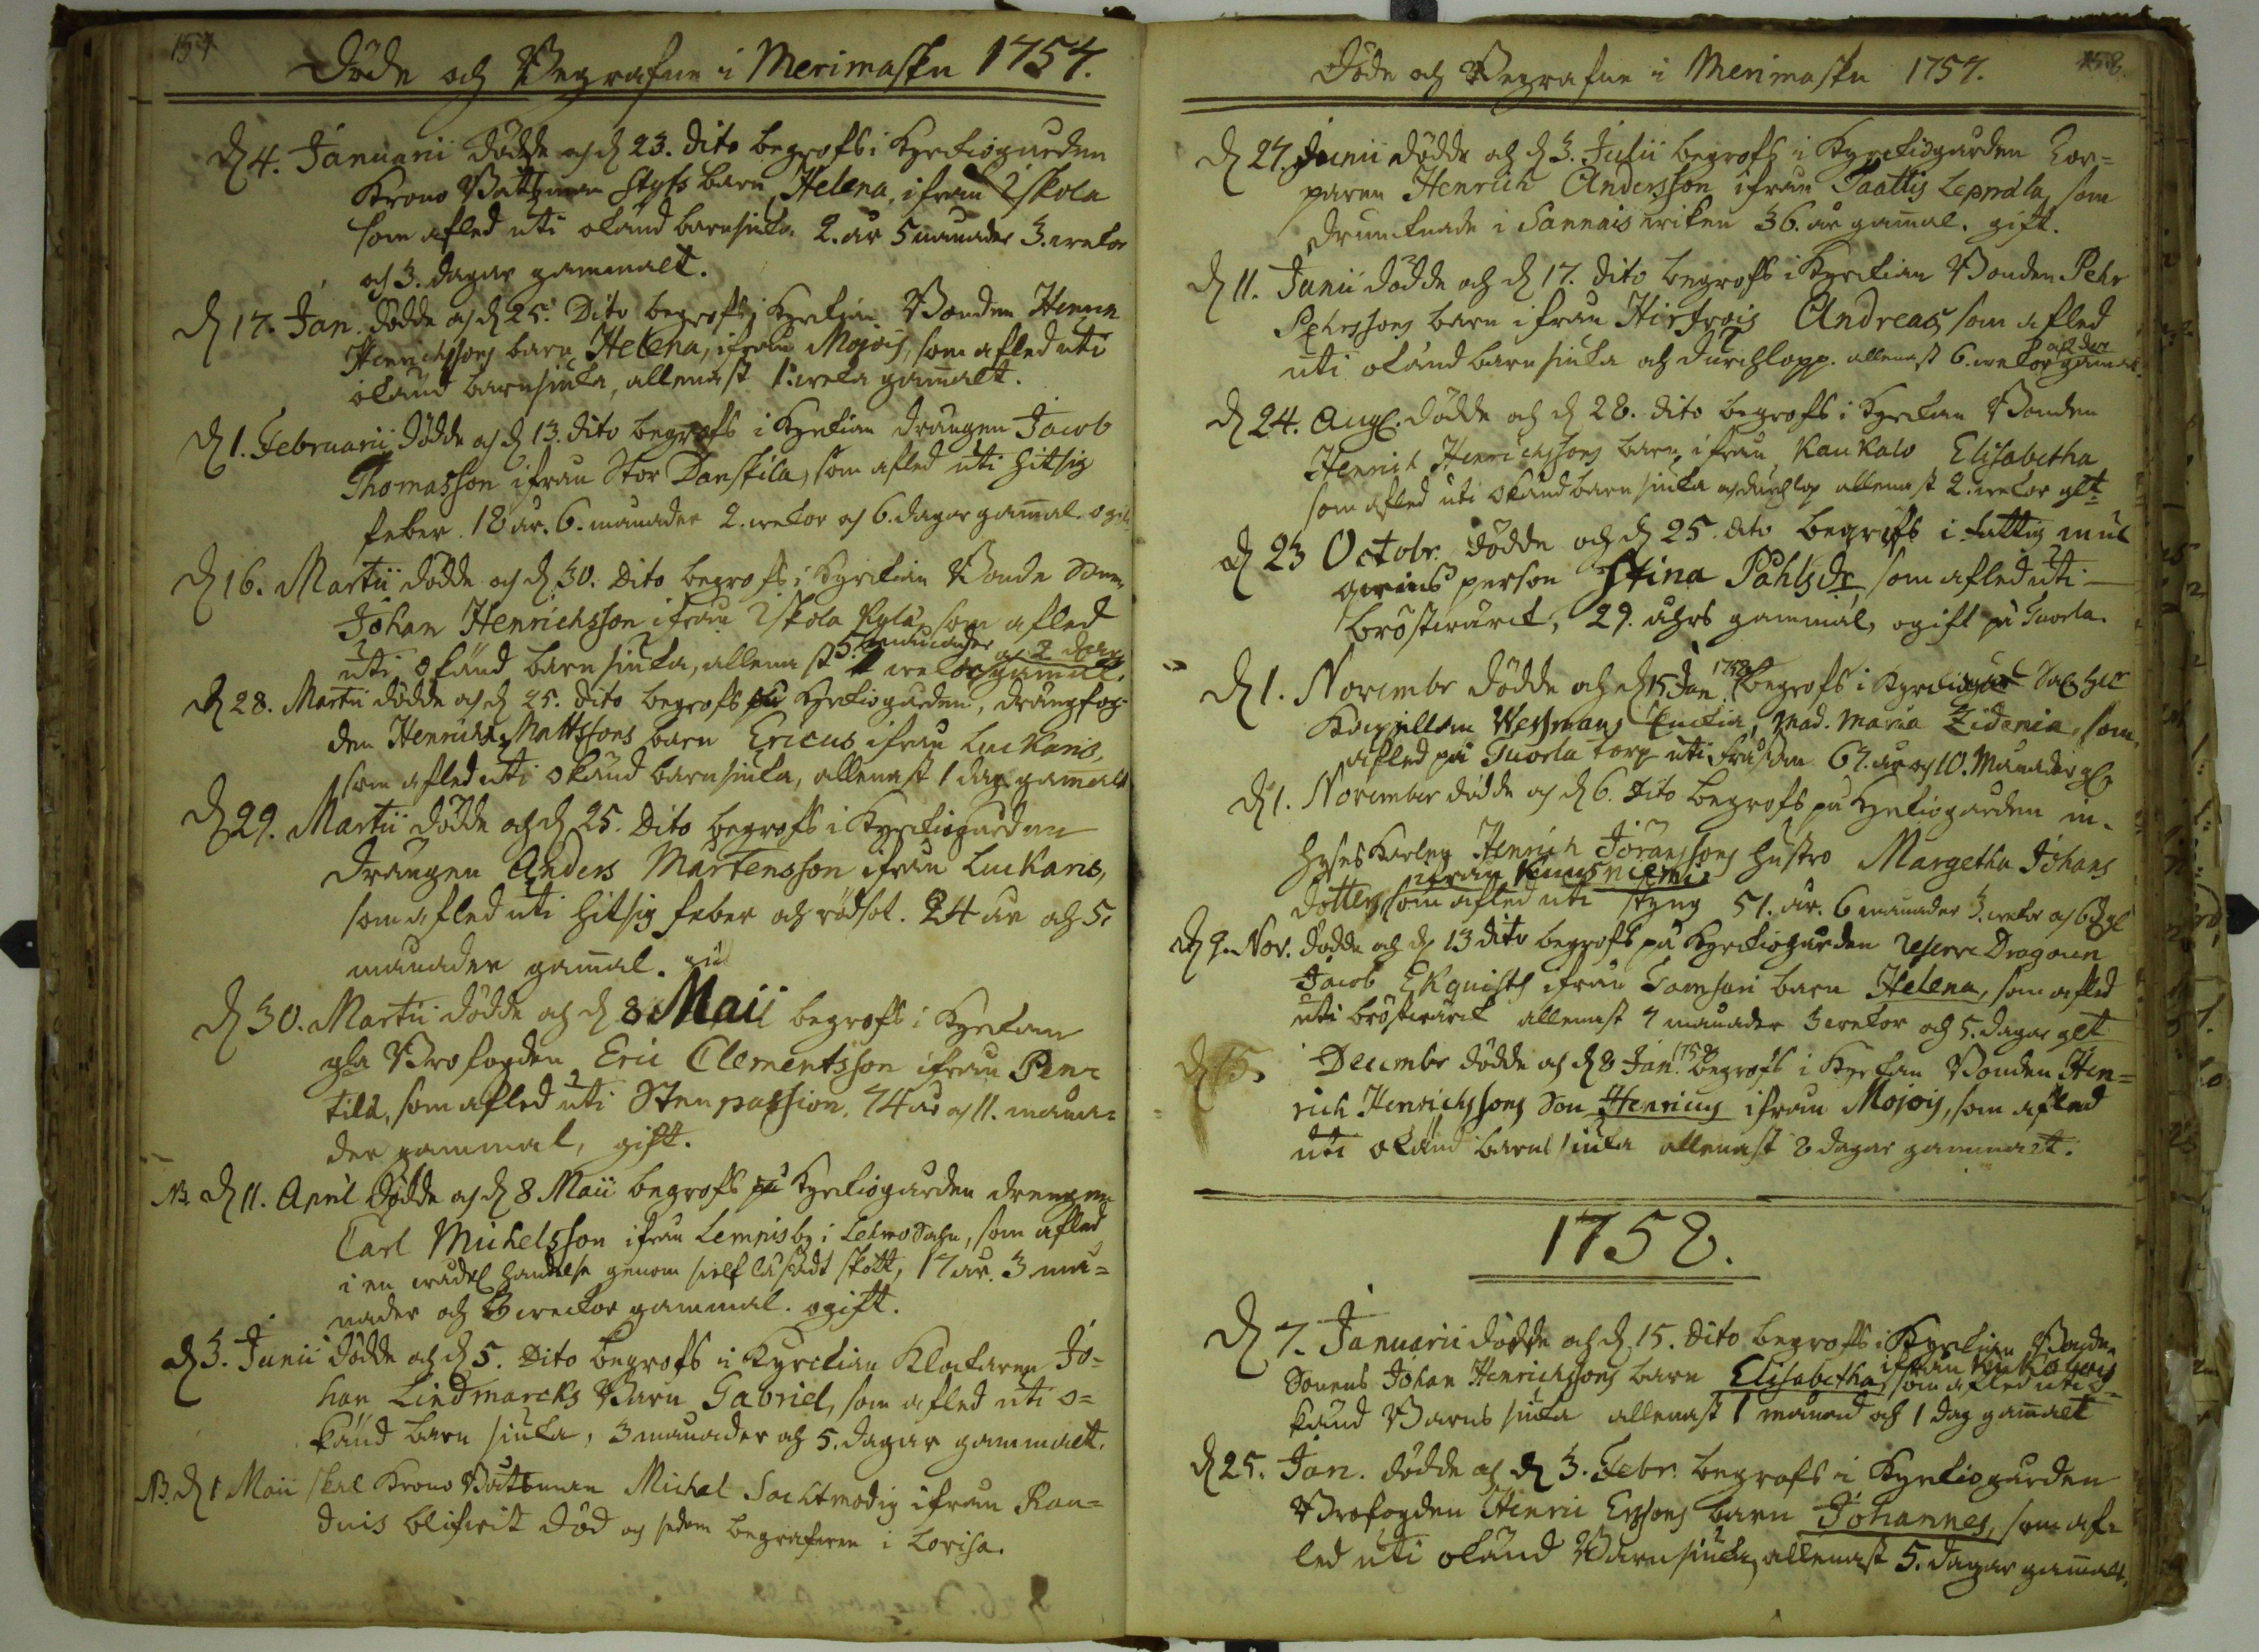 157
Döde och Begrafne i Merimasku 1757.
D 4. Januarii dödde och d 23. dito begrofs i Kyrkiogården
Krono Båtsman Styfs barn Helena, ifrån Iskola
som afled uti okänd barnsiuka 2. år 5 månader 3. wekor
och 3. dagar gammalt.
D 17. Jan. dödde och d 25. Dito begrofs i Kyrkian Bonden Henric
Henrichssons barn Helena, ifrån Mojois, som afled uti
okänd barnsiuka, allenast 1. weka gamalt.
D 1. Februarii dödde och d 13. dito begrofs i Kyrkian drängen Jacob
Thomasson ifrån Stor Danskila, som afled uti hitsig
feber. 18 år. 6. månader 2. wekor och 6. dagar gamal.
D 16. Martii dödde och d 30. Dito begrofs i Kyrkian Bonde Sonen
Johan Henrichsson ifrån Iskola som afled
uti okänd barnsiuka, allenast 5. månader wekor och 2 dagar gamal.
D 28. Martii dödde och d 25. dito begrofs på Kyrkiogården, drängfog-
den Henrich Mattssons barn Ericus ifrån Luckaris,
som afled uti okänd barnsiuka, allenast 1 dag gamalt
D 29. Martii dödde och d 25. Dito begrofs i Kyrkiogården
Drängen Anders Mårtensson ifrån Luckaris,
som afled uti hitsig feber och rödsot. 24 år och 5.
månader gamal.
D 30. Martii dödde och d 8 Maii begrofs i Kyrkian
gla Brofogden Eric Clementsson ifrån Pent
tilä, som afled uti Stenpassion. 74 år och 11. måna-
der gammal, gift.
NB. D 11. April dödde och d 8 Maii begrofs på Kyrkiogården drengen
Carl Michelsson ifrån Lempisby i Lehmo Sochn, som afled
i en händelse genom sielf skått, 17 år. 3 må-
nader och 3 weckor gammal. ogift.
D 3. Junii dödde och d 5. Dito begrofs i Kyrckian Klockaren Jo-
han Lindmarcks Barn Gabriel, som afled uti o-
känd barnsiuka, 3 månader och 5. dagar gammalt.
NB. D 1 Maii skal Krono Båtsman Michel Sachtmodig ifrån Ran-
duis blifwit död och sedan begrafwen i Lovisa.
158
Döde och Begrafne i Merimasku 1757.
D 27. Junii dödde och d 3. Julii begrofs i Kyrckiogården Tor-
paren Henrich Andersson ifrån Paattis Leprala, som
drunknade i Sannais wiken 36. år gamal. gift.
D 11. Junii dödde och d 17. dito begrofs i Kyrckian Bonden Pehr
Pehrssons barn ifrån Hirfwois Andreas, som afled
uti okänd barnsiuka och durchlopp. allenast 6. wekor gamal.
D 24. Aug. dödde och d 28. dito begrofs i Kyrkian Bonden
Henrik Henrichssons barn ifrån Kaukalo Elisabetha
som afled uti okänd barnsiuka och durchlop allenast 2. wekor glt
D 23 Octobr. dödde och d 25. dito begrofs i fattig mul
qwins person Stina Påhls dr, som afled uti
bröstwärck, 29. åhrs gammal, ogift på Tuorla.
D 1. Novembr dödde och d 15 Jan 1758 begrofs i Kyrckiogår
Wessmans Enckia, Mad. Maria Zidenia, som
afled på Tuorla torp uti 67. år och 10. Månader gl
D 1. November dödde och d 6. Dito begrofs på Kyrkiogården in-
hyses Karlen Henrich Jöranssons hustro Margetha Johans
dotter ifrån Kuusniemi, som afled uti styng 51. år. 6 månader 3. wekor och 6 d gl
D 9. Nov. dödde och d 13 dito begrofs på Kyrckiogården Reserve Dragoun
Jacob Ekquists ifrån Samsari barn Helena, som afled
uti bröstwärck allenast 7 månader 3 wekor och 5. dagar glt
D 15. Decembr dödde och d 8 Jan. 1758 begrofs i Kyrkian Bonden Hen-
rich Henrichssons Son Henricus ifrån Mojois, som afled
uti okänd barnsiuka allenast 8 dagar gammalt.
1758.
D 7. Januarii dödde och d 15. dito begrofs i Kyrkian Bonde
Sonens Johan Henrichssons barn Elisabetha ifrån som afled uti o-
känd Barns siuka allenast 1 månad och 1 dag gamalt
D 25. Jan. dödde och d 3. Febr. begrofs i Kyrkiogården
Brofogden Henric Erssons barn Johannes, som af-
led uti okänd Barnsiuka, allenast 5. dagar gamalt.